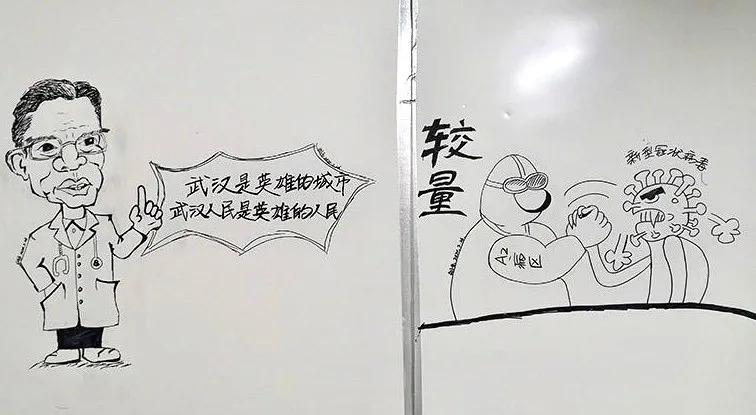 武汉是英雄的城市
武汉人民是英雄的人民
较量
新型冠状病毒
A2病区